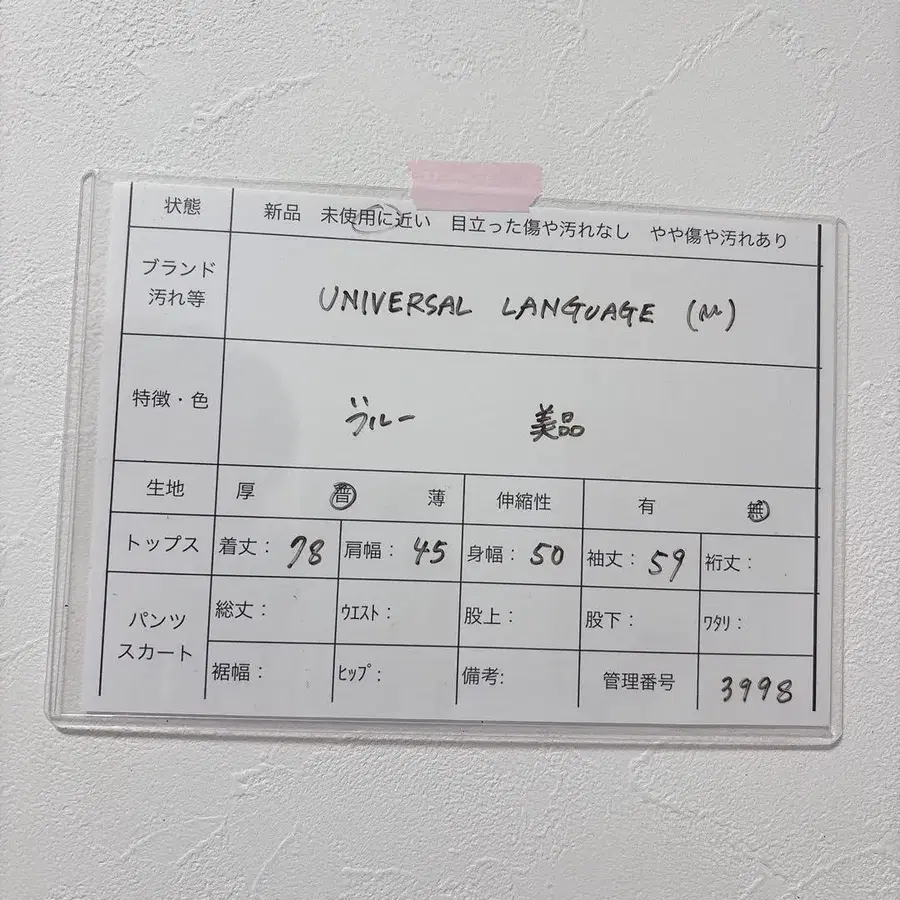 状態 新品 未使用に近い 目立った傷や汚れなし やや傷や汚れあり
ブランド
汚れ等
UNIVERSAL LANGUAGE (M)
特徴・色 ブルー 美品
生地 厚 普 薄 伸縮性 有 無
トップス 着丈： 78 肩幅： 45 身幅： 50 袖丈： 59 裄丈：
パンツ
スカート
総丈： ｳｴｽﾄ： 股上： 股下： ﾜﾀﾘ：
裾幅： ﾋｯﾌﾟ： 備考: 管理番号 3998